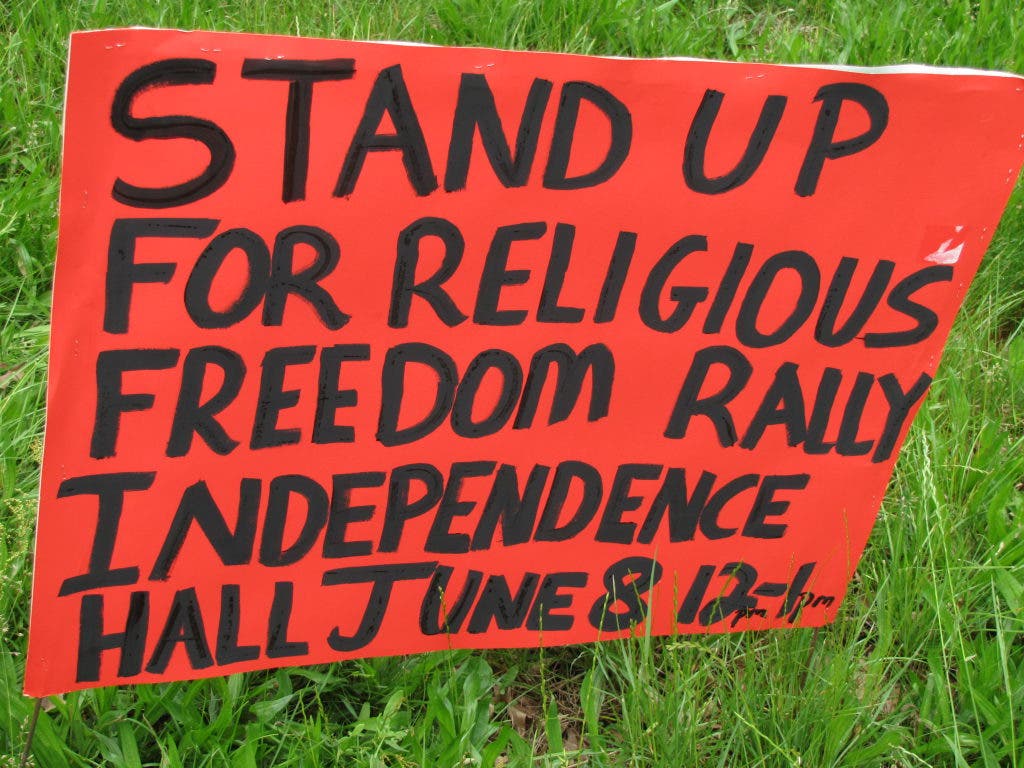 STAND UP
FOR RELIGIOUS
FREEDOM RALLY
INDEPENDENCE
HALL JUNE 8 12pm-1pm